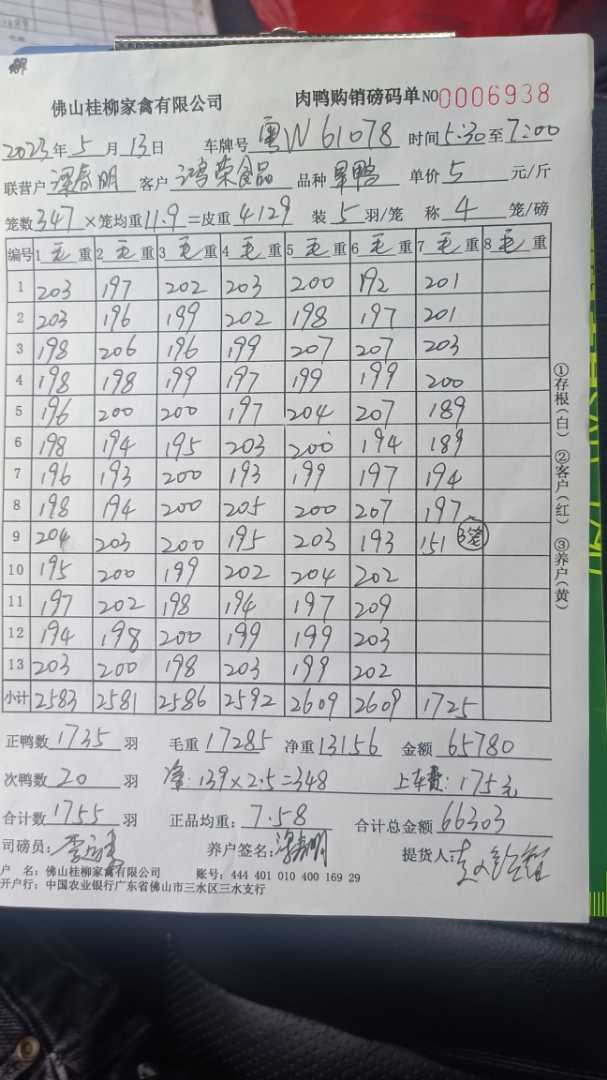 佛山桂柳家禽有限公司 肉鸭购销磅码单 NO 0006938
2023年 5 月 13 日 车牌号 粤W 61078 时间 5:30 至 7:00
联营户 谭春明 客户 鸿荣食品 品种 旱鸭 单价 5 元/斤
笼数 347 ×笼均重 11.9 =皮重 4129 装 5 羽/笼 称 4 笼/磅
编号 1 毛 重 2 毛 重 3 毛 重 4 毛 重 5 毛 重 6 毛 重 7 毛 重 8 毛 重
1 203 197 202 203 200 192 201
2 203 196 199 202 198 197 201
3 198 206 196 199 207 207 203
4 198 198 199 197 199 199 200
5 196 200 200 197 204 207 189
6 198 194 195 203 200 194 189
7 196 193 200 193 199 197 194
8 198 194 200 205 200 207 197
9 204 203 200 195 203 193 151 3笼
10 195 200 199 202 204 202
11 197 202 198 194 197 209
12 194 198 200 199 199 203
13 203 200 198 203 199 202
小计 2583 2581 2586 2592 2609 2609 1725
正鸭数 1735 羽 毛重 17285 净重 13156 金额 65780
次鸭数 20 羽 净: 139×2.5=348 上车费: 175元
合计数 1755 羽 正品均重: 7.58 合计总金额 66303
司磅员: 养户签名: 谭春明 提货人:
户 名: 佛山桂柳家禽有限公司 账号: 444 401 010 400 169 29
开户行: 中国农业银行广东省佛山市三水区三水支行
①存根(白) ②客户(红) ③养户(黄)